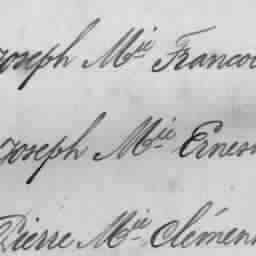 Joseph Mie Franco
Joseph Mie Ernes
Pierre Mie Clémen